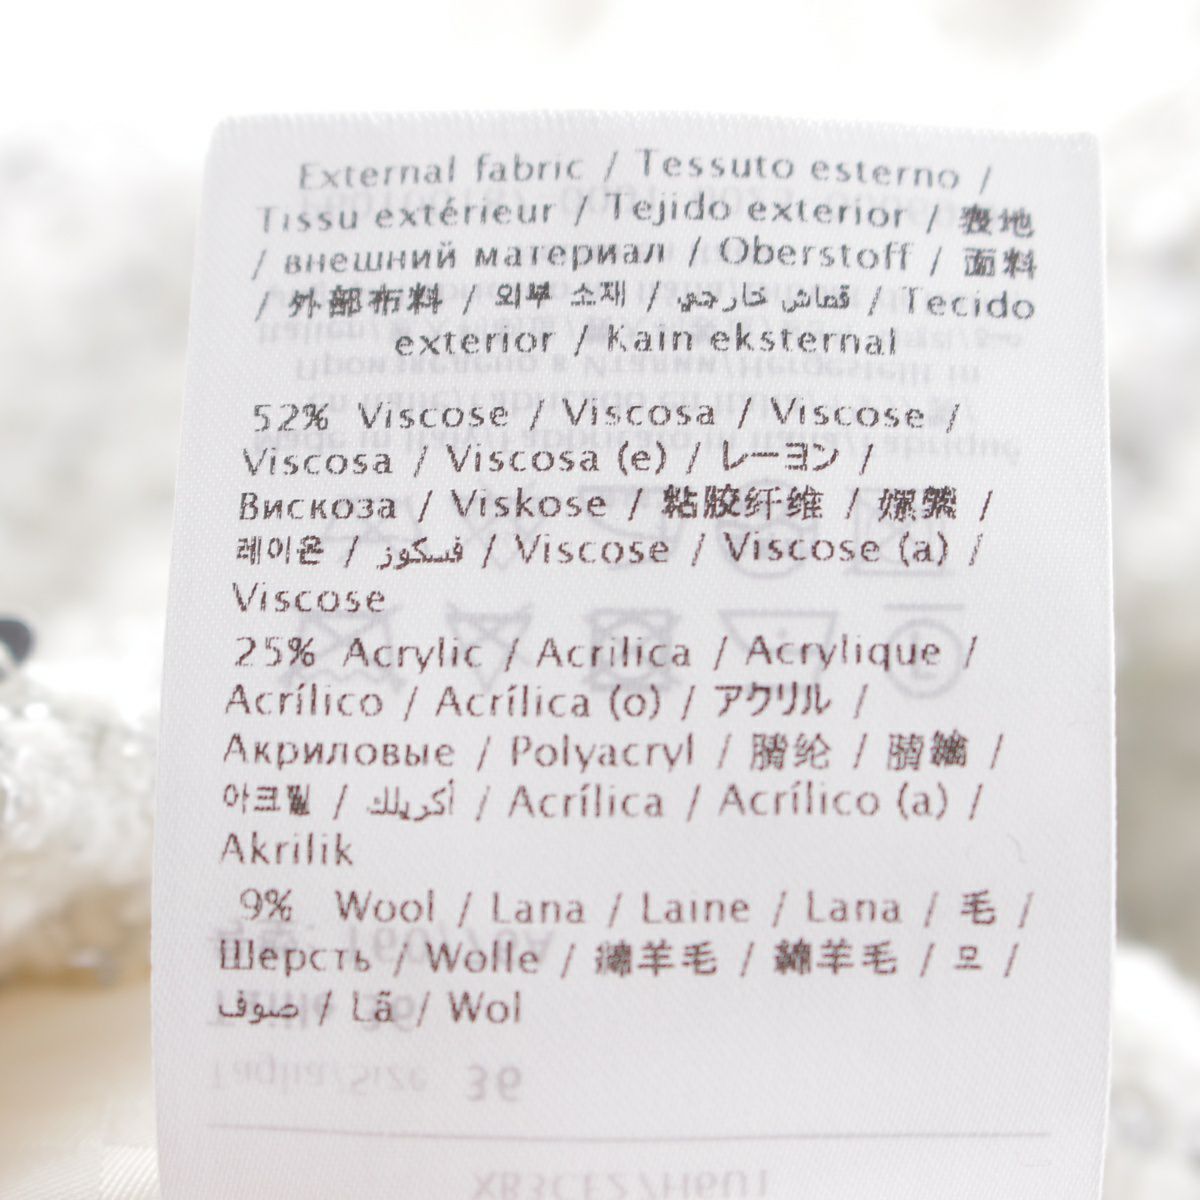 External fabric / Tessuto esterno /
Tissu extérieur / Tejido exterior / 表地
/ внешний материал / Oberstoff / 面料
/ 外部布料 / 외부 소재 / قماش خارجي / Tecido
exterior / Kain eksternal
52% Viscose / Viscosa / Viscose /
Viscosa / Viscosa (e) / レーヨン /
Вискоза / Viskose / 粘胶纤维 / 嫘縈 /
레이온 / فسكوز / Viscose / Viscose (a) /
Viscose
25% Acrylic / Acrilica / Acrylique /
Acrílico / Acrílica (o) / アクリル /
Акриловые / Polyacryl / 腈纶 / 腈綸 /
아크릴 / أكريلك / Acrílica / Acrílico (a) /
Akrilik
9% Wool / Lana / Laine / Lana / 毛 /
Шерсть / Wolle / 羊毛 / 綿羊毛 / 모 /
صوف / Lã / Wol
Taglia/Size 36